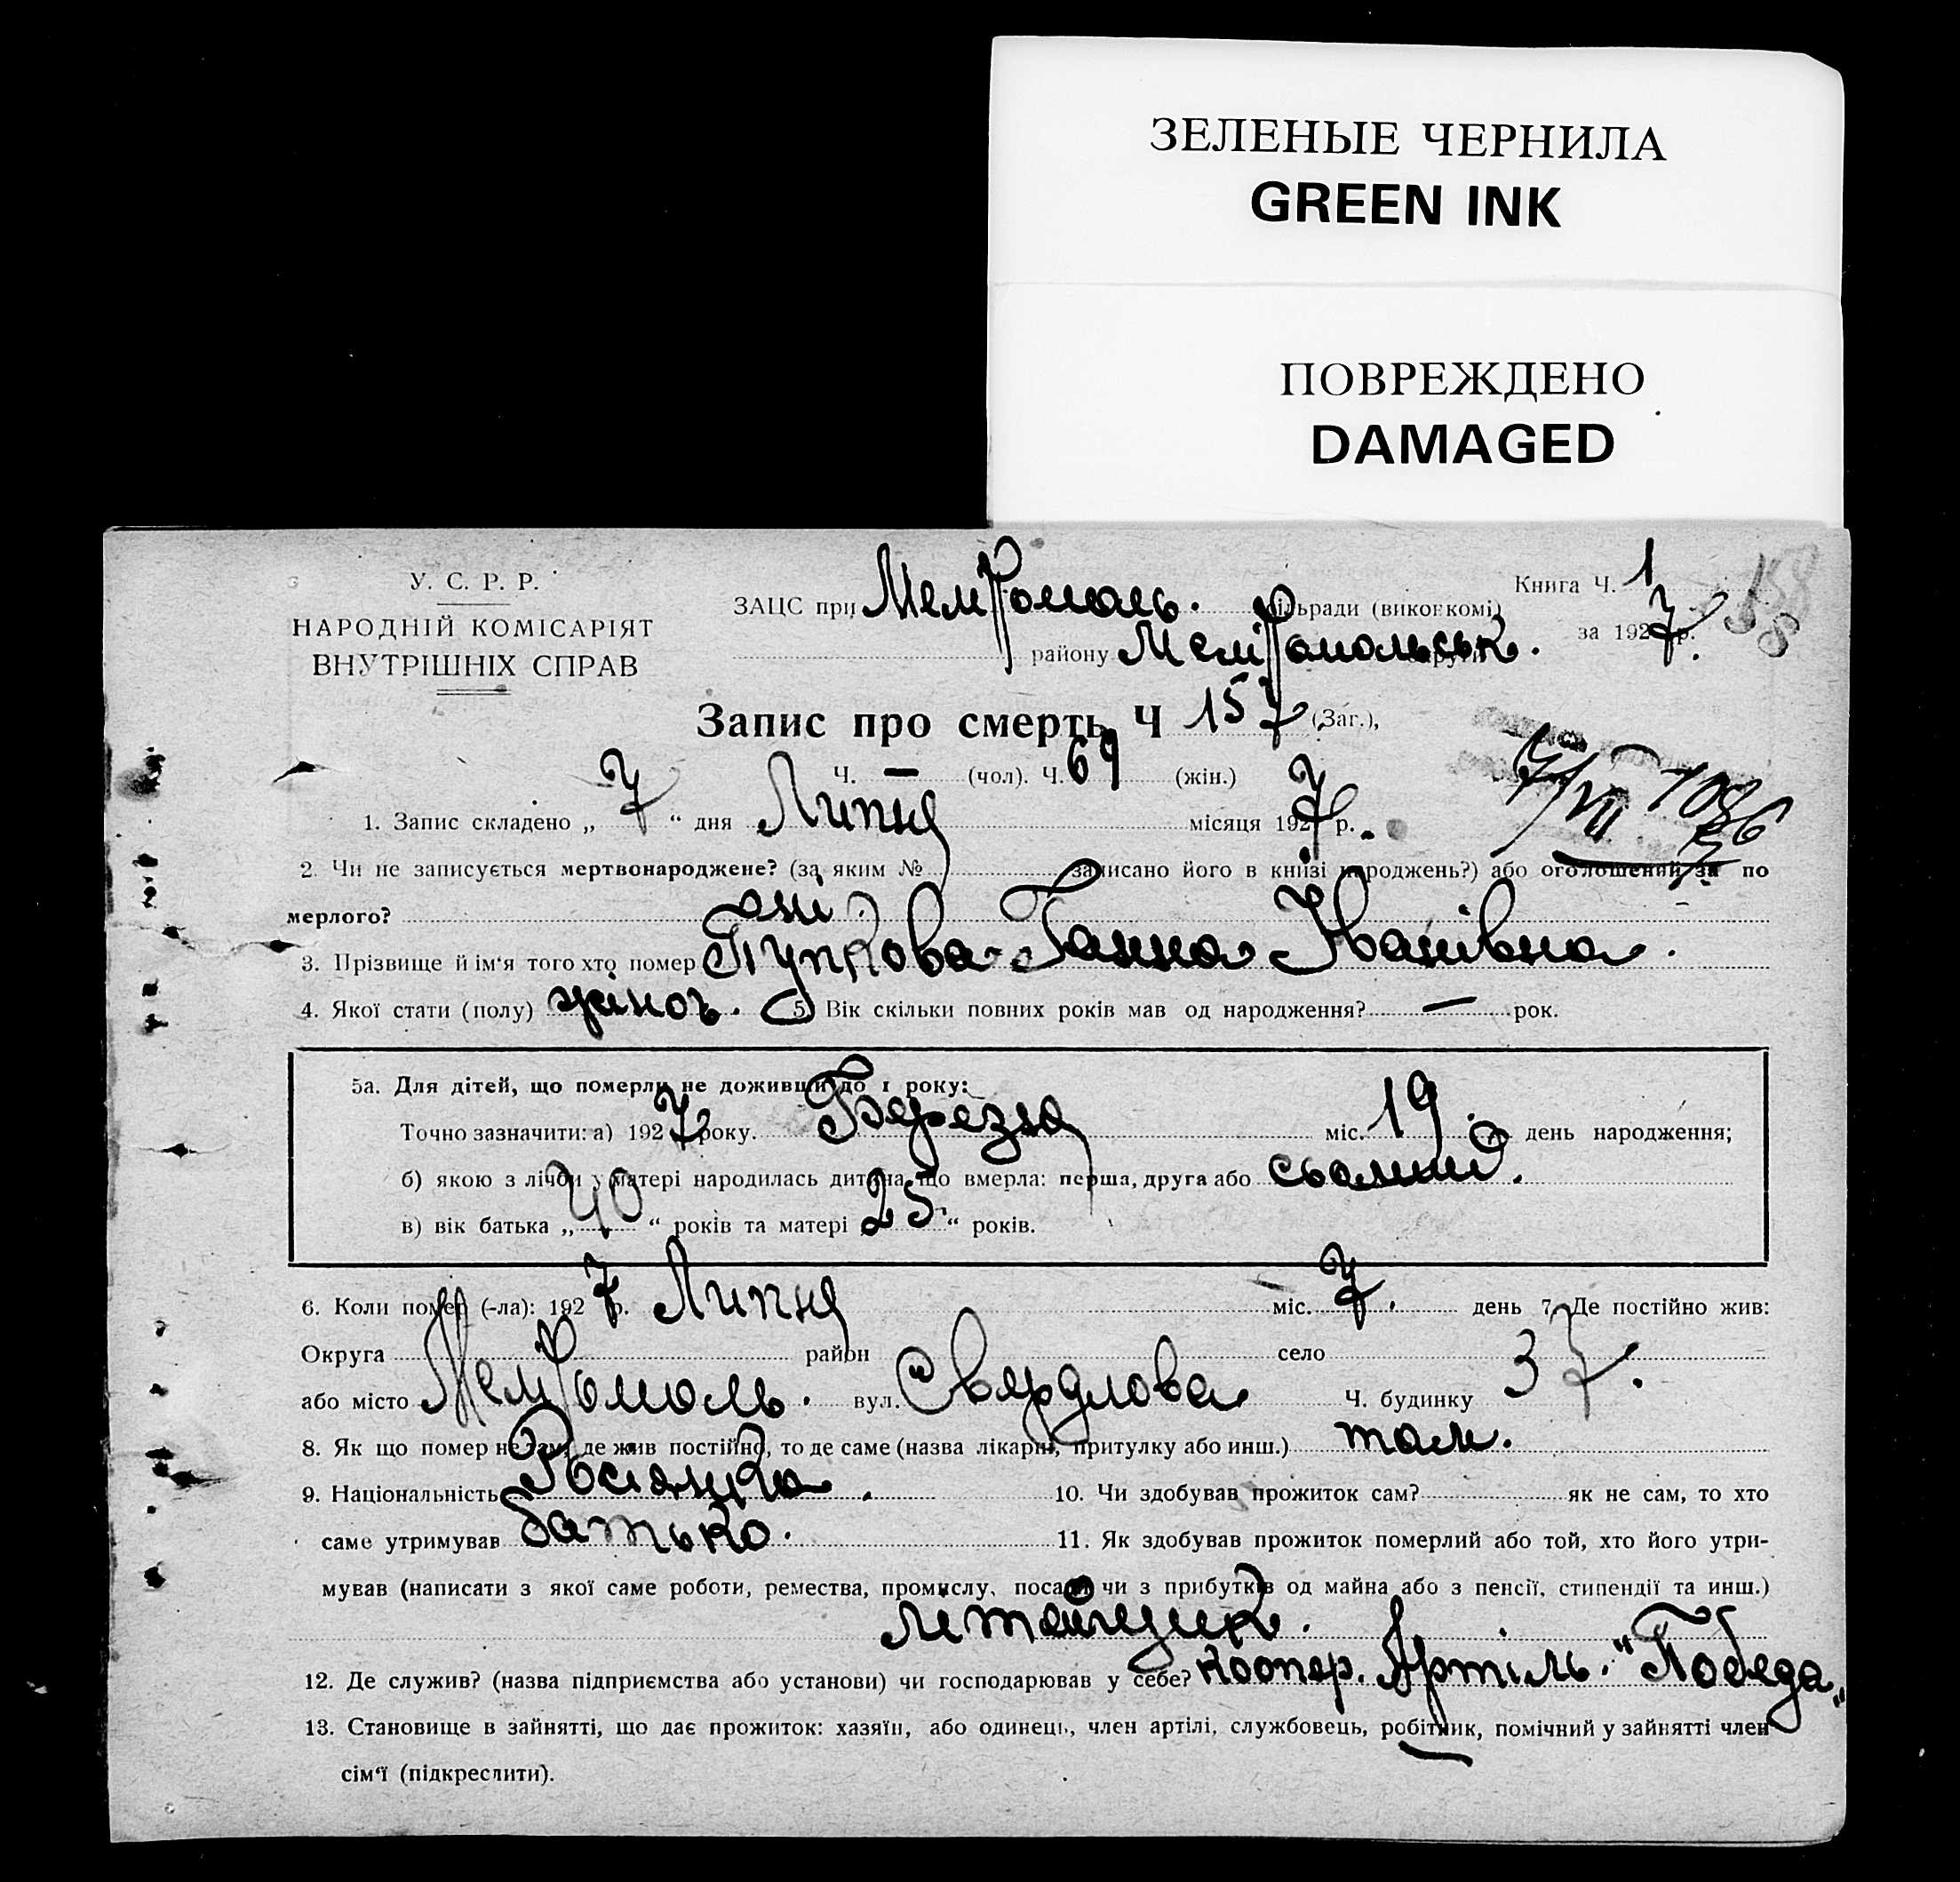 ЗЕЛЕНЫЕ ЧЕРНИЛА
GREEN INK
ПОВРЕЖДЕНО
DAMAGED
У. С. Р. Р.
НАРОДНІЙ КОМІСАРІЯТ
ВНУТРІШНІХ СПРАВ
Книга Ч. 1
ЗАЦС при Мелітополь. сільради (виконкомі)
за 1927 р.
158
району Мелітопольськ. округи
Запис про смерть Ч 157 (Заг.),
Ч. — (чол). Ч. 69 (жін.)
1. Запис складено „ 7 “ дня Липня місяця 1927 р.
2. Чи не записується мертвонароджене? (за яким № записано його в книзі народжень?) або оголошений за по
мерлого? ні
3. Прізвище й ім‘я того хто помер Пупкова Ганна Іванівна.
4. Якої стати (полу) жіноч. 5. Вік скільки повних років мав од народження? — рок.
5а. Для дітей, що померли не доживши до 1 року:
Точно зазначити: а) 1927 року. Березня міс. 19 день народження;
б) якою з лічби у матері народилась дитина що вмерла: перша, друга або сьомий.
в) вік батька „ 40 “ років та матері „ 25 “ років.
6. Коли помер (-ла): 1927 р. Липня міс. 7. день 7. Де постійно жив:
Округа район село
або місто Мелітополь. вул. Свердлова Ч. будинку 37.
8. Як що помер не там, де жив постійно, то де саме (назва лікарні, притулку або инш.) там.
9. Національність Росіянка. 10. Чи здобував прожиток сам? як не сам, то хто
саме утримував батько. 11. Як здобував прожиток померлий або той, хто його утри-
мував (написати з якої саме роботи, ремества, промислу, посади чи з прибутків од майна або з пенсії, стипендії та инш.)
літейщик.
12. Де служив? (назва підприємства або установи) чи господарював у себе? Коопер. Артіль. "Победа"
13. Становище в зайнятті, що дає прожиток: хазяїн, або одинець, член артілі, службовець, робітник, помічний у зайнятті член
сім‘ї (підкреслити).